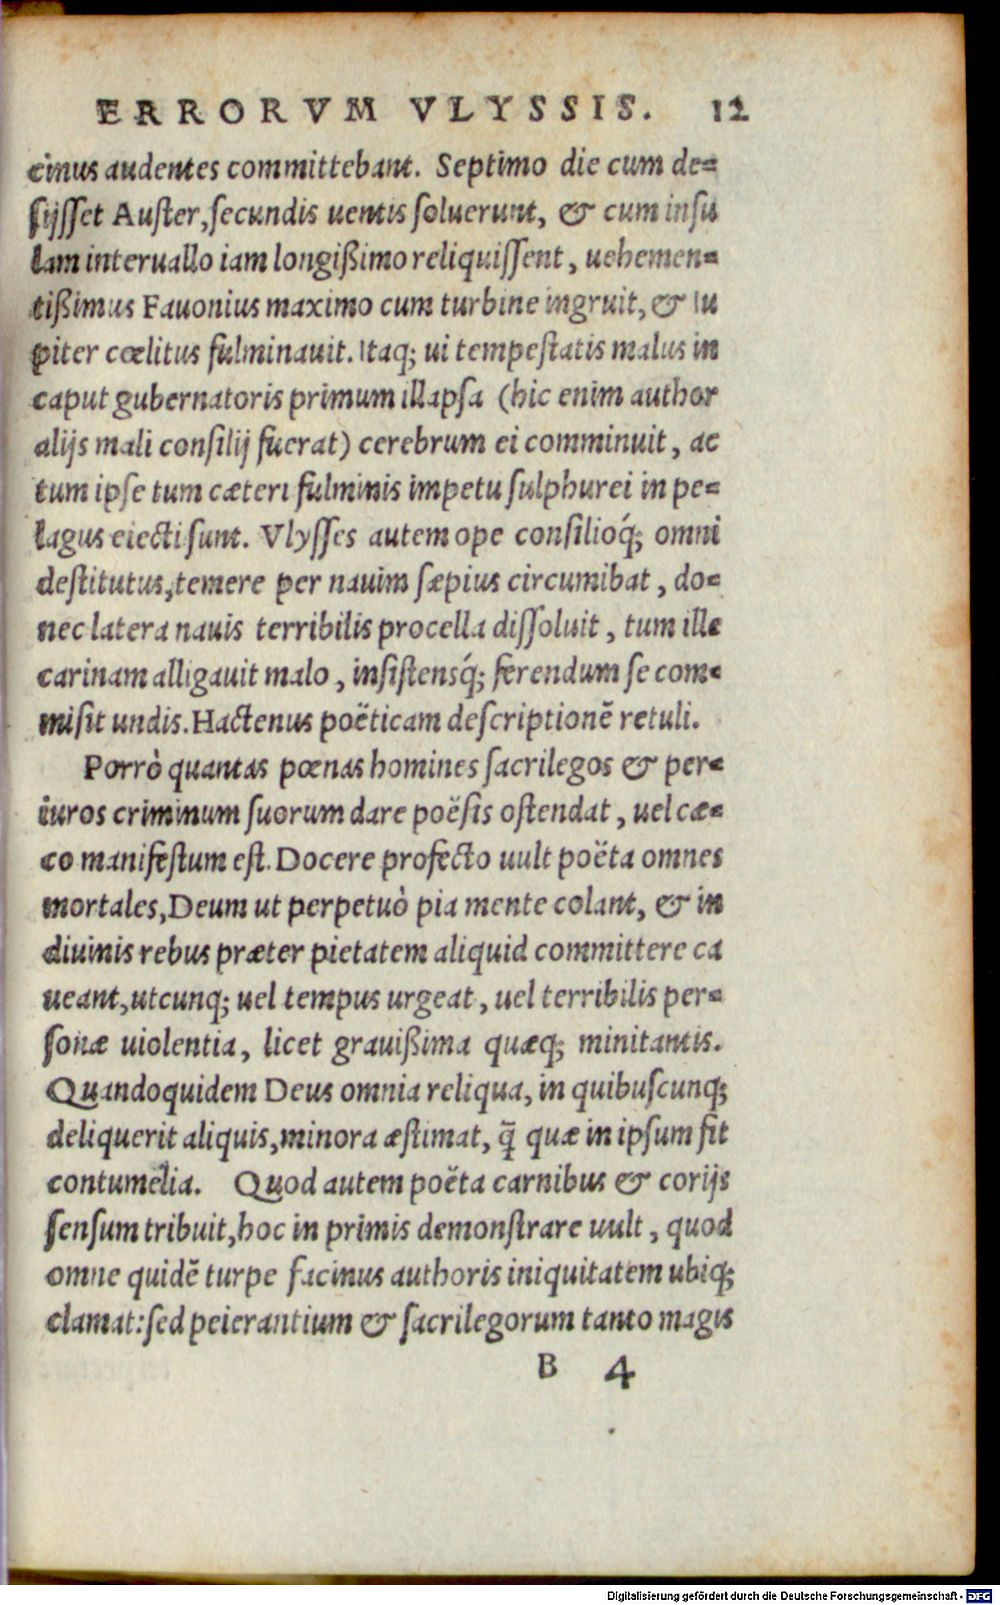 ERRORVM VLYSSIS. 12
cinus audentes committebant. Septimo die cum de=
ſijſſet Auſter, ſecundis uentis ſoluerunt, & cum inſu
lam interuallo iam longißimo reliquiſſent, uehemen=
tißimus Fauonius maximo cum turbine ingruit, & Iu
piter cœlitus fulminauit. Itaq; ui tempeſtatis malus in
caput gubernatoris primum illapſa (hic enim author
alijs mali conſilij fuerat) cerebrum ei comminuit, ac
tum ipſe tum cæteri fulminis impetu ſulphurei in pe=
lagus eiecti ſunt. Vlyſſes autem ope conſilioq́; omni
deſtitutus, temere per nauim ſæpius circumibat, do=
nec latera nauis terribilis procella diſſoluit, tum ille
carinam alligauit malo, inſiſtensq́; ferendum ſe com=
miſit undis. Hactenus poëticam deſcriptionē retuli.
Porrò quantas pœnas homines ſacrilegos & per=
iuros criminum ſuorum dare poëſis oſtendat, uel cæ=
co manifeſtum eſt. Docere profecto uult poëta omnes
mortales, Deum ut perpetuò pia mente colant, & in
diuinis rebus præter pietatem aliquid committere ca
ueant, utcunq; uel tempus urgeat, uel terribilis per=
ſonæ uiolentia, licet grauißima quæq; minitantis.
Quandoquidem Deus omnia reliqua, in quibuſcunq;
deliquerit aliquis, minora æſtimat, q̄ quæ in ipſum fit
contumelia. Quod autem poëta carnibus & corijs
ſenſum tribuit, hoc in primis demonſtrare uult, quod
omne quidē turpe facinus authoris iniquitatem ubiq;
clamat: ſed peierantium & ſacrilegorum tanto magis
B 4
Digitalisierung gefördert durch die Deutsche Forschungsgemeinschaft - DFG